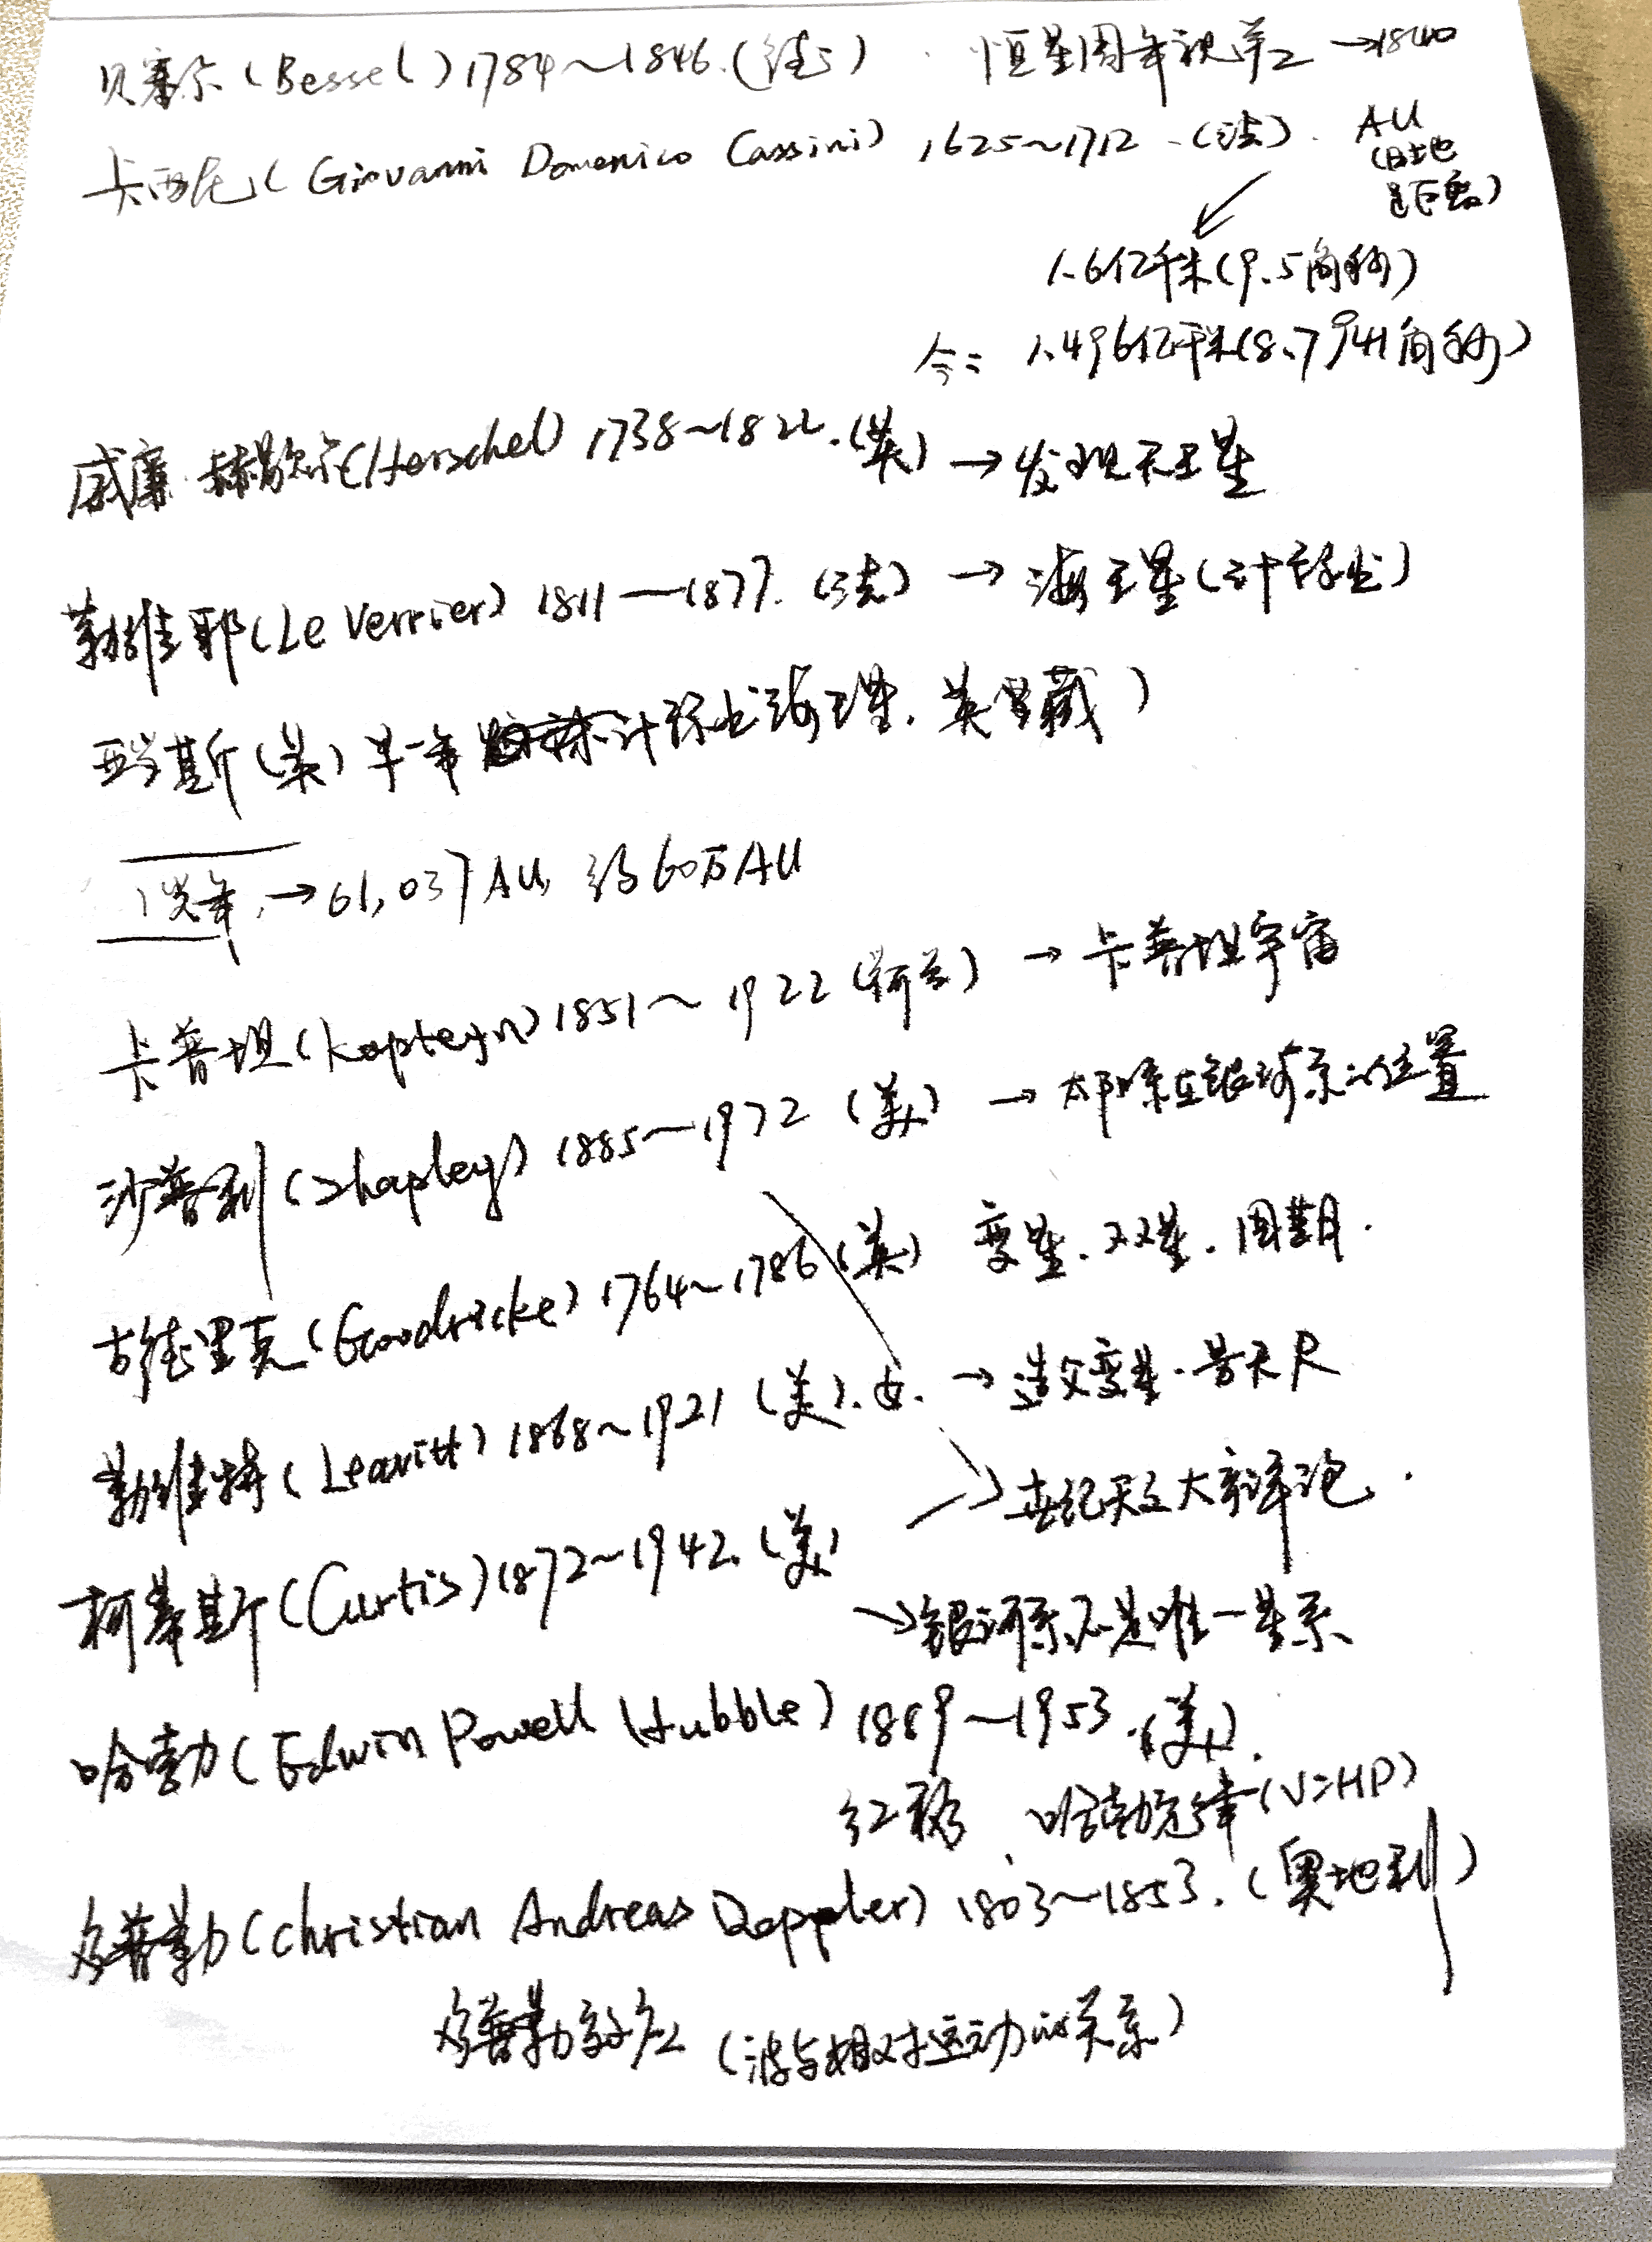 贝塞尔(Bessel)1784～1846.(德) 恒星周年视差 →1840
卡西尼(Giovanni Domenico Cassini) 1625～1712.(法). AU
(日地
距离)
1.6亿千米(9.5角秒)
今: 1.496亿千米(8.7941角秒)
威廉·赫歇尔(Herschel) 1738～1822.(英) →发现天王星
勒维耶(Le Verrier) 1811—1877.(法) →海王星(计算出)
亚当斯(英)早一年计算出海王星.英 藏)
1光年.→61,037AU, 约60万AU
卡普坦(Kapteyn)1851～1922(荷兰) →卡普坦宇宙
沙普利(Shapley) 1885～1972 (美) →太阳系在银河系的位置
古德里克(Goodricke) 1764～1786(英) 变星.双星.周期.
勒维特(Leavitt) 1868～1921 (美).女. →造父变星.量天尺
→世纪天文大辩论.
柯蒂斯(Curtis)1872～1942.(美)
→银河系不是唯一星系
哈勃(Edwin Powell Hubble) 1889～1953.(美).
红移. 哈勃定律(V=HD)
多普勒(Christian Andreas Doppler) 1803～1853.(奥地利)
多普勒效应 (波与相对运动的关系)